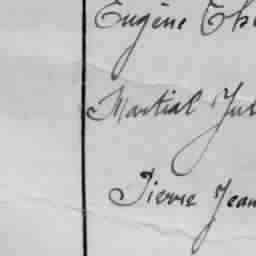 Eugène
Martial Jul
Pierre Jean